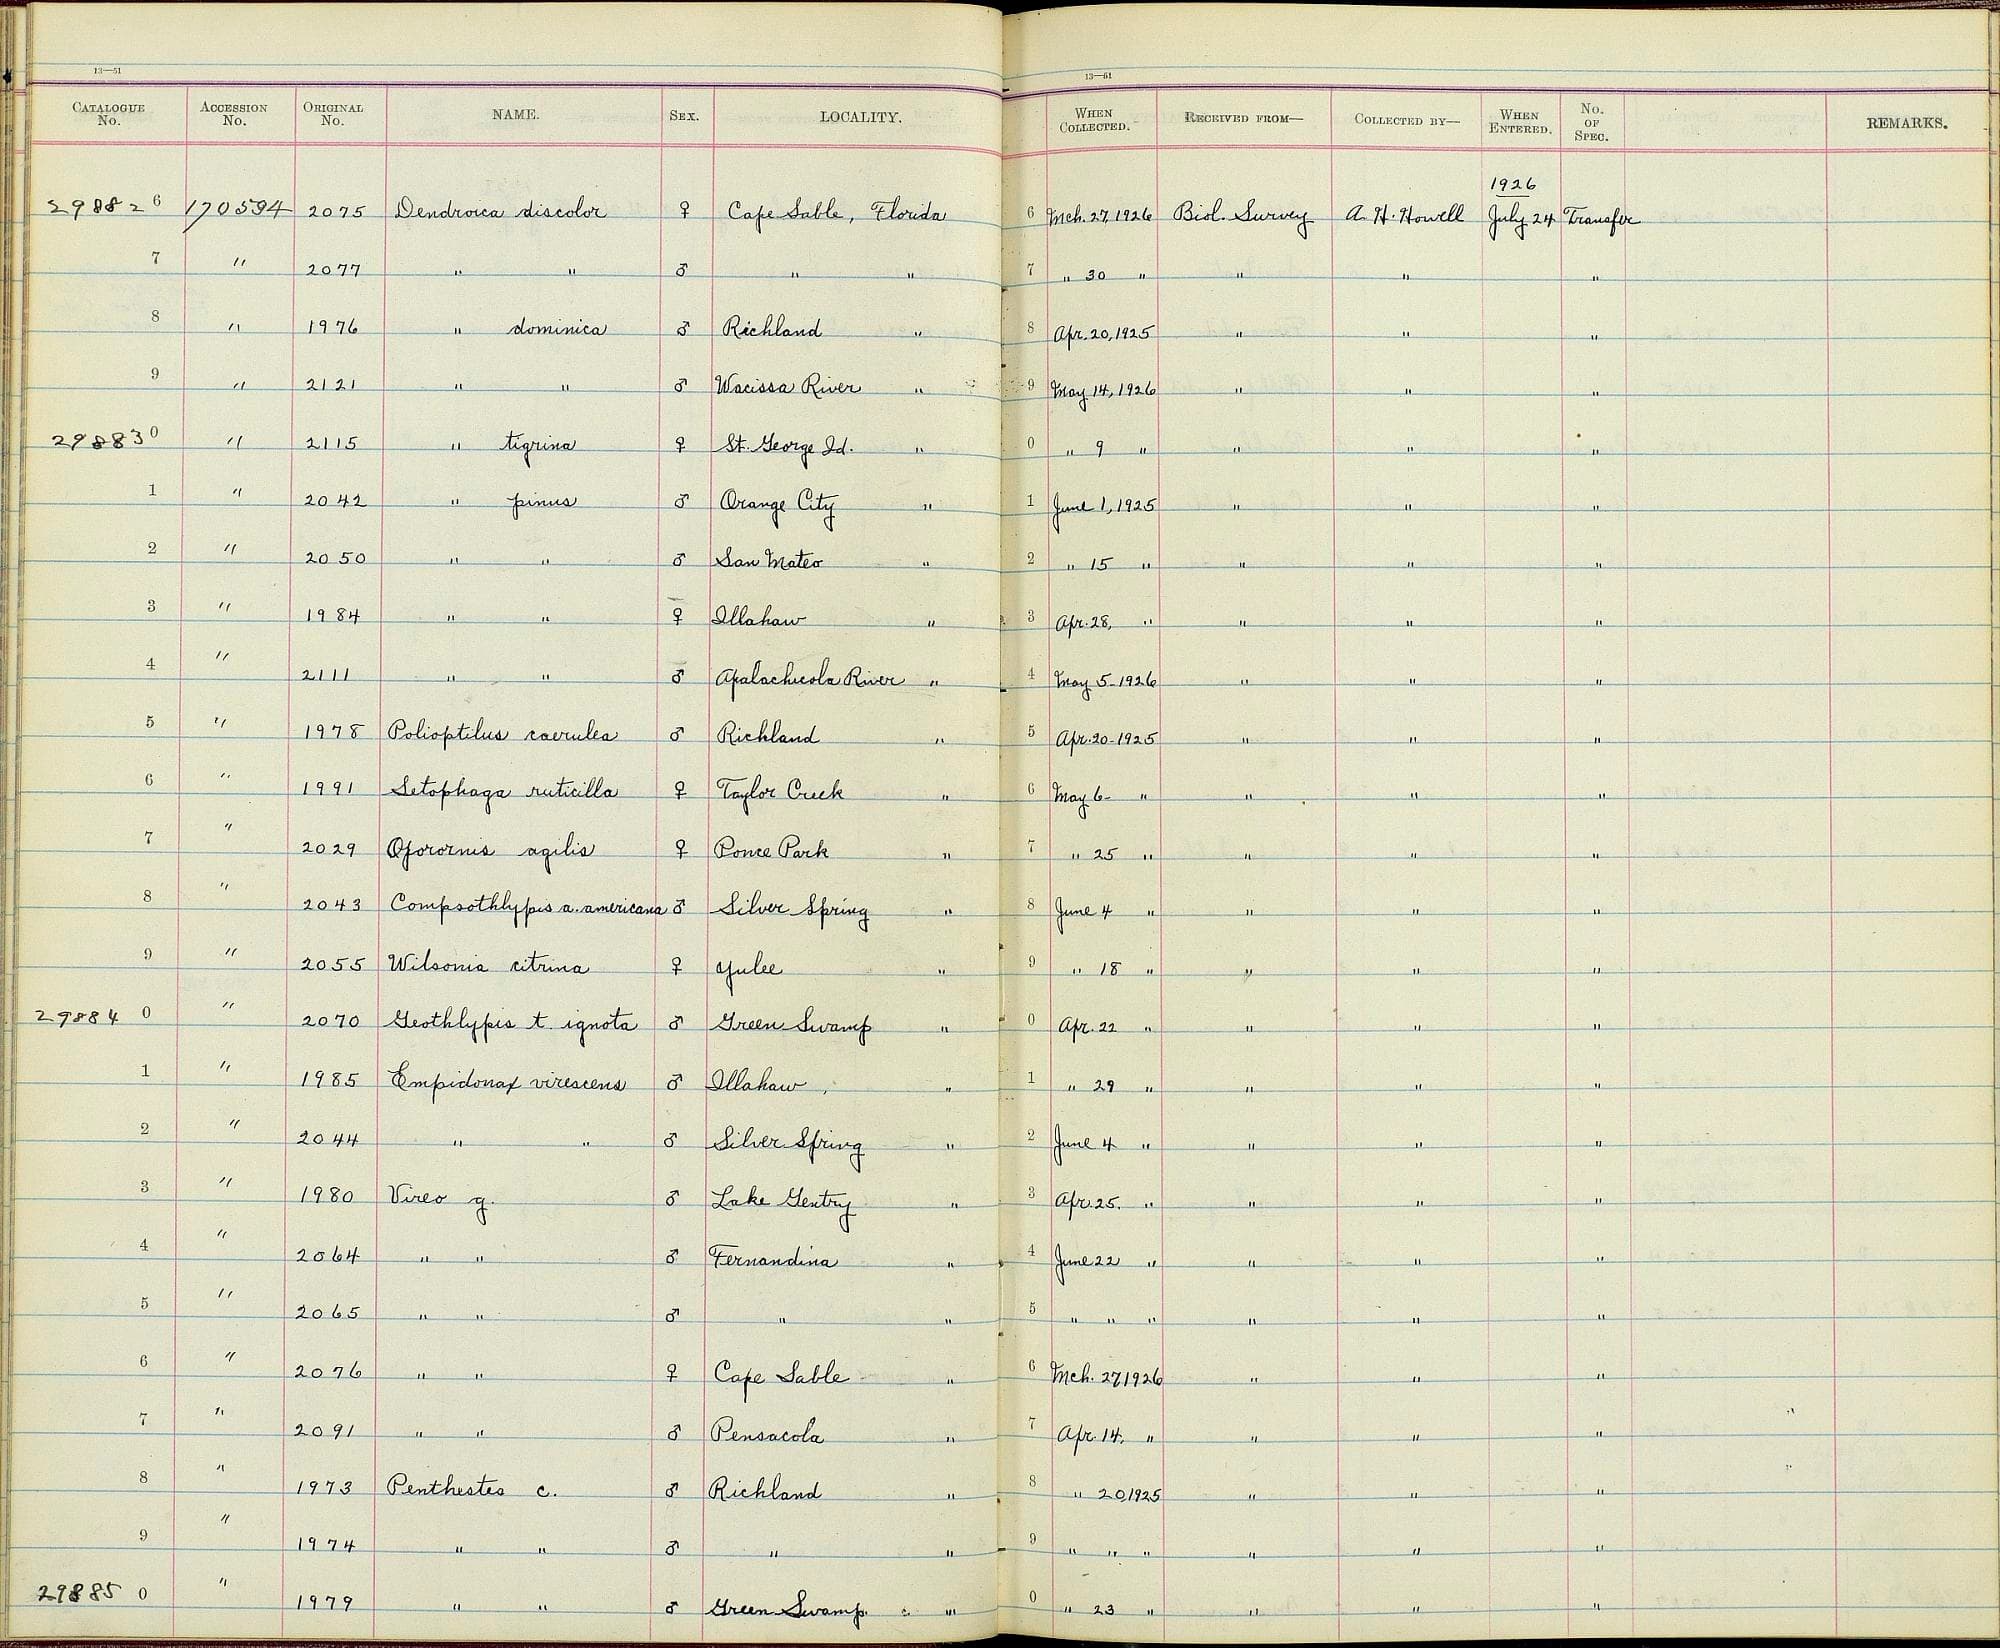 13—51
13—51
CATALOGUE No. ACCESSION No. ORIGINAL No. NAME. SEX. LOCALITY. WHEN COLLECTED. RECEIVED FROM— COLLECTED BY— WHEN ENTERED. No. OF SPEC. REMARKS.
1926
29882 6 170594 2075 Dendroica discolor ♀ Cape Sable, Florida 6 Mch. 27, 1926 Biol. Survey A. H. Howell July 24 Transfer
7 " 2077 " " ♂ " " 7 " 30 " " " "
8 " 1976 " dominica ♂ Richland " 8 Apr. 20, 1925 " " "
9 " 2121 " " ♂ Wacissa River " 9 May 14, 1926 " " "
29883 0 " 2115 " tigrina ♀ St. George Id. " 0 " 9 " " " "
1 " 2042 " pinus ♂ Orange City " 1 June 1, 1925 " " "
2 " 2050 " " ♂ San Mateo " 2 " 15 " " " "
3 " 1984 " " ♀ Illahaw " 3 Apr. 28, " " " "
4 " 2111 " " ♂ Apalachicola River " 4 May 5-1926 " " "
5 " 1978 Polioptilus caerulea ♂ Richland " 5 Apr. 20-1925 " " "
6 " 1991 Setophaga ruticilla ♀ Taylor Creek " 6 May 6- " " " "
7 " 2029 Oporornis agilis ♀ Ponce Park " 7 " 25 " " " "
8 " 2043 Compsothlypis a. americana ♂ Silver Spring " 8 June 4 " " " "
9 " 2055 Wilsonia citrina ♀ Yulee " 9 " 18 " " " "
29884 0 " 2070 Geothlypis t. ignota ♂ Green Swamp " 0 Apr. 22 " " " "
1 " 1985 Empidonax virescens ♂ Illahaw, " 1 " 29 " " " "
2 " 2044 " " ♂ Silver Spring " 2 June 4 " " " "
3 " 1980 Vireo g. ♂ Lake Gentry " 3 Apr. 25. " " " "
4 " 2064 " " ♂ Fernandina " 4 June 22 " " " "
5 " 2065 " " ♂ " " 5 " " " " " "
6 " 2076 " " ♀ Cape Sable " 6 Mch. 27, 1926 " " "
7 " 2091 " " ♂ Pensacola " 7 Apr. 14, " " " "
8 " 1973 Penthestes c. ♂ Richland " 8 " 20, 1925 " " "
9 " 1974 " " ♂ " " 9 " " " " " "
29885 0 " 1979 " " ♂ Green Swamp. " 0 " 23 " " " "